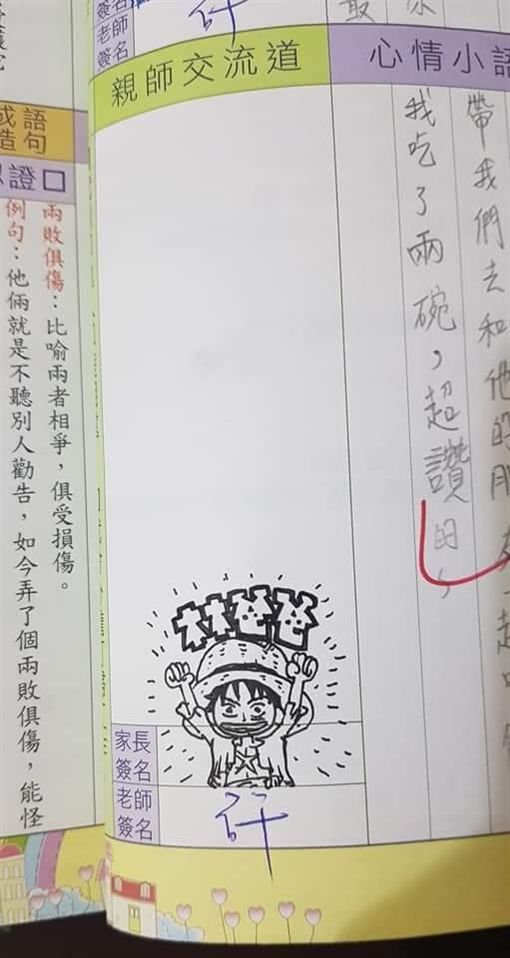 簽名
老師
簽名
心情小語
帶我們去和他的朋友一起吃
我吃了兩碗，超讚的，
親師交流道
林爸爸
家長
簽名
老師
簽名
許
成語
造句
證口
兩敗俱傷：比喻兩者相爭，俱受損傷。
例句：他倆就是不聽別人勸告，如今弄了個兩敗俱傷，能怪